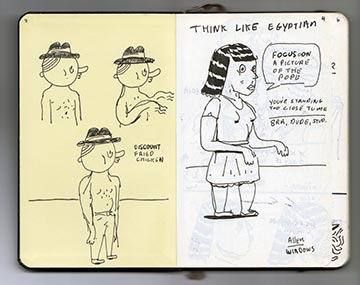 DISCOUNT
FRIED
CHICKEN
THINK LIKE EGYPTIAN
FOCUS ON
A PICTURE
OF THE
POPO
YOU'RE STANDING
TOO CLOSE TO ME
BRA, DUDE,
Allen
WINDOWS